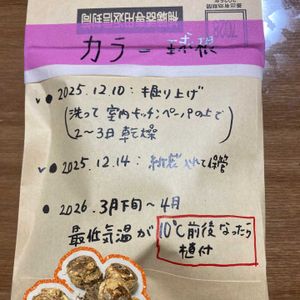 カラー球根
• 2025.12.10:掘り上げ
(洗って室内キッチンペーパの上で
2〜3日乾燥)
• 2025.12.14:紙袋に入れて保管
• 2026.3月下旬〜4月
最低気温が10℃前後なったら
植付